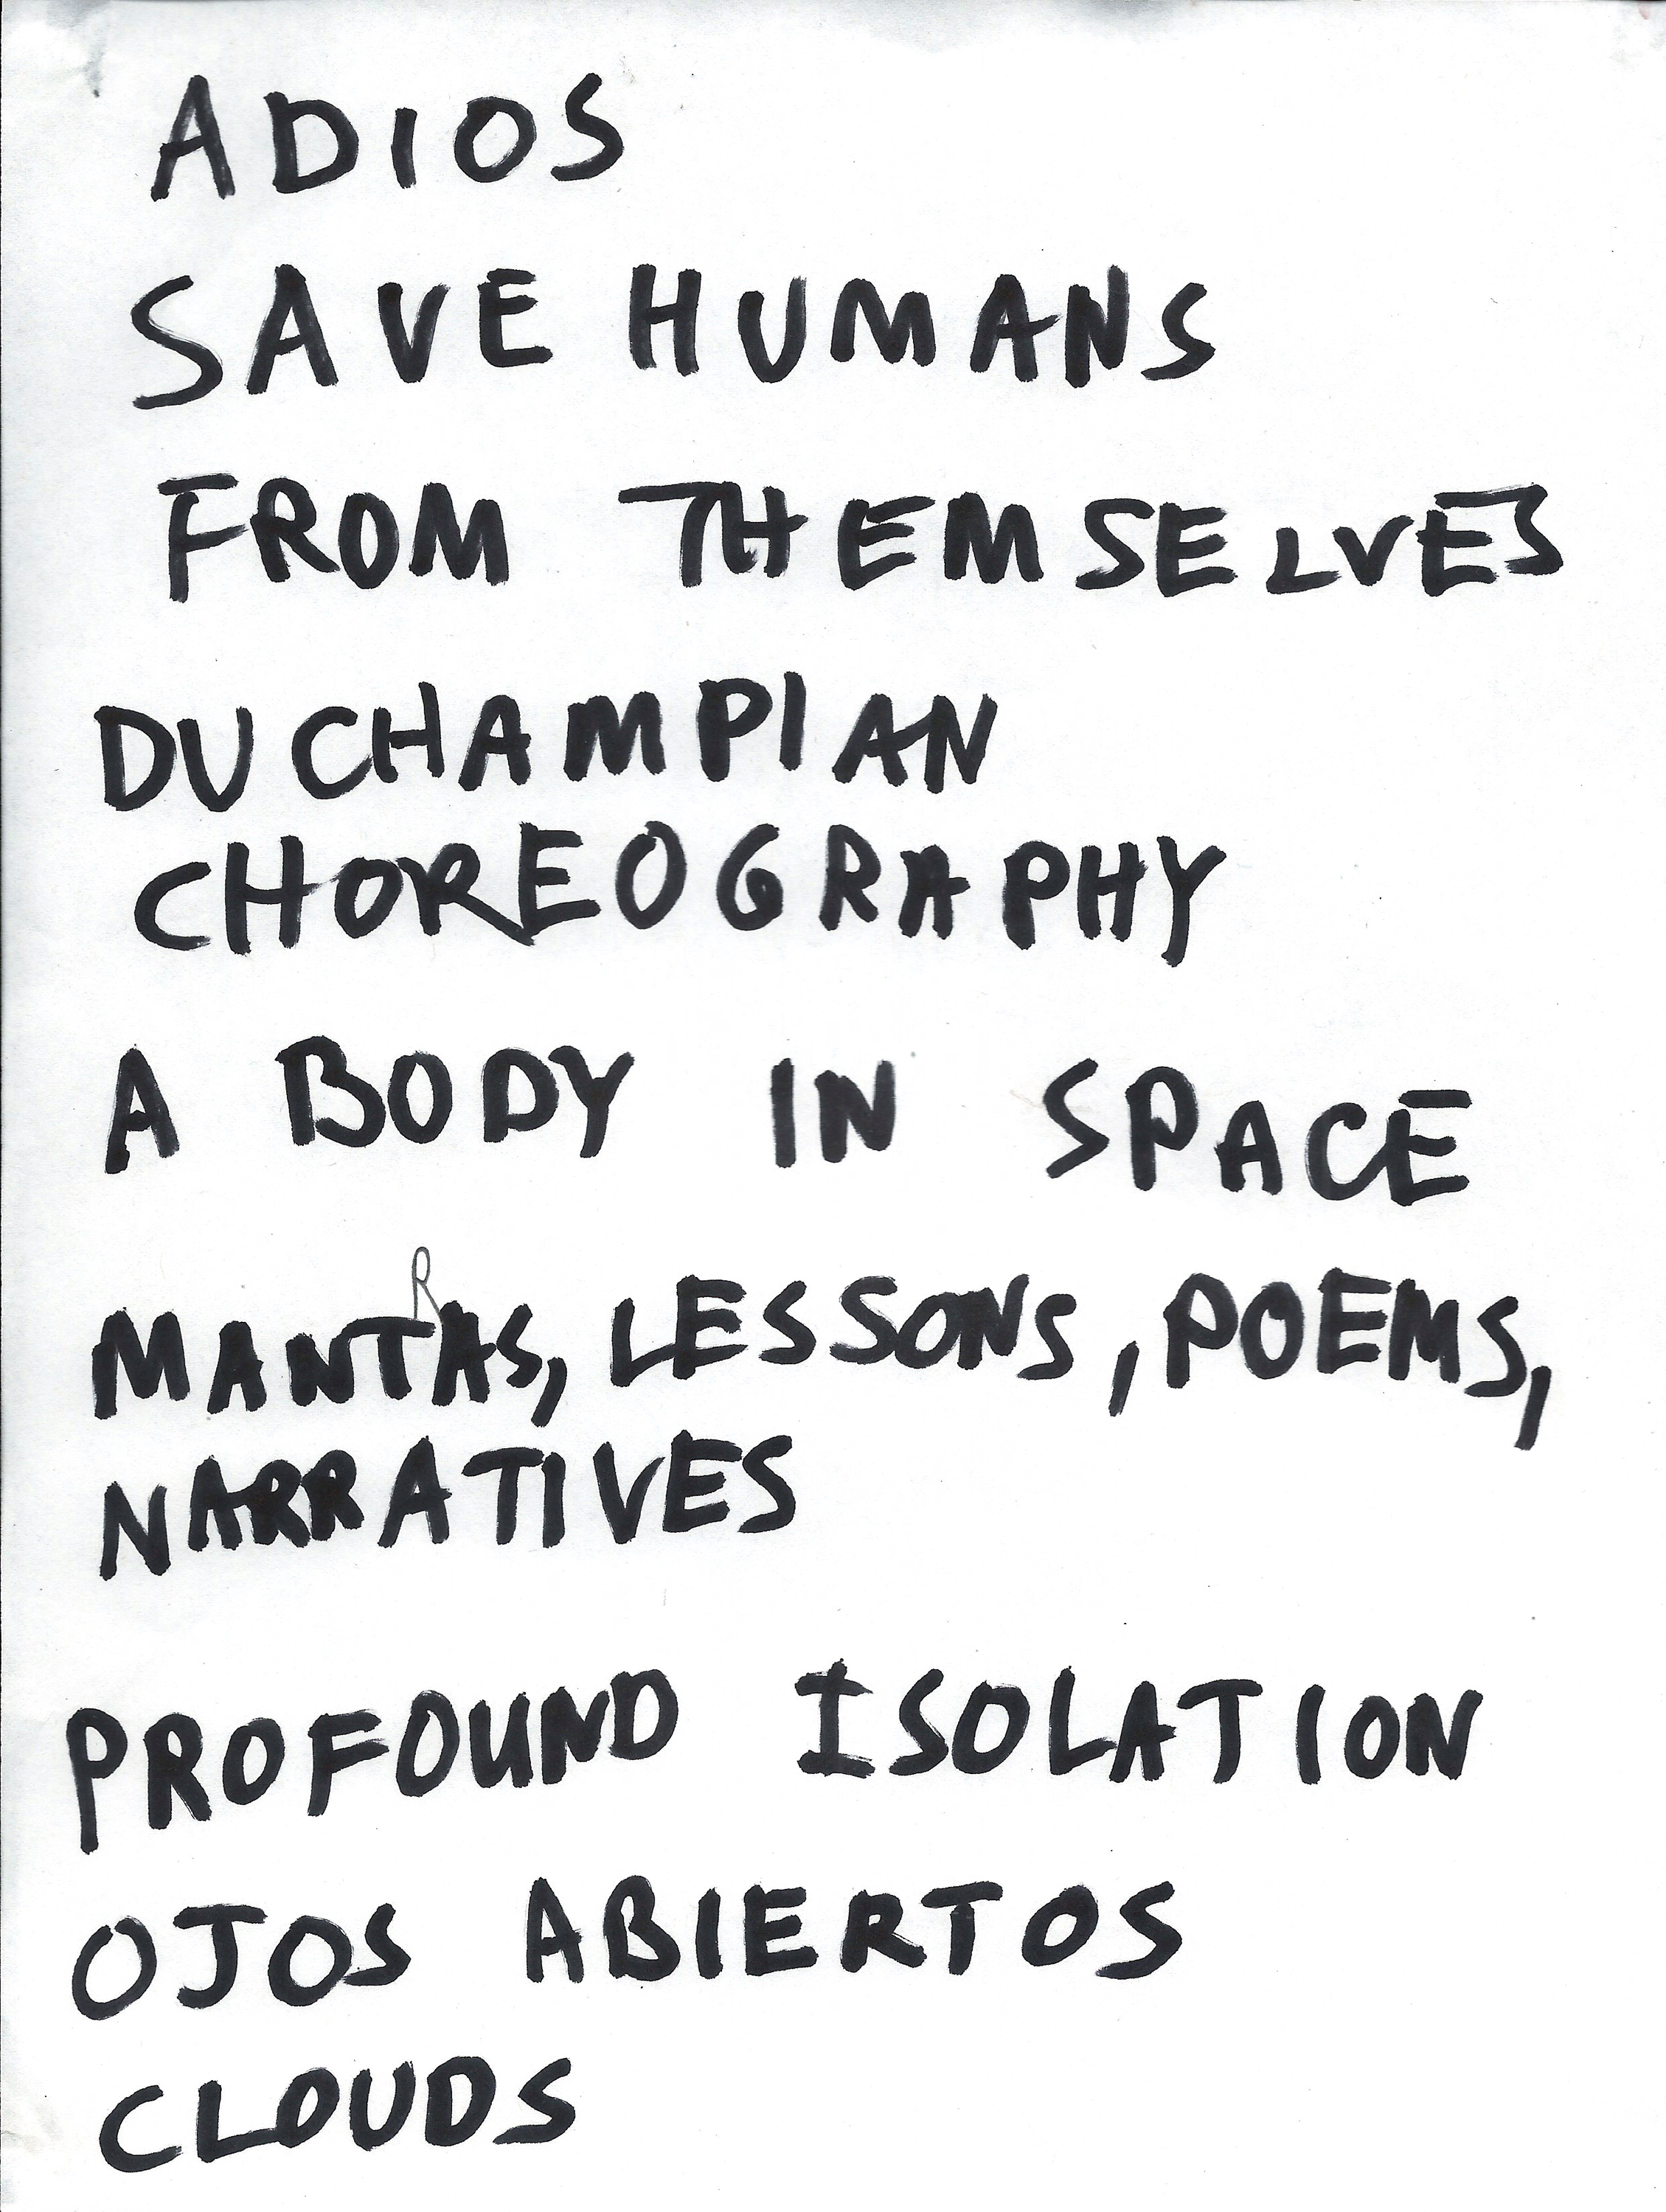 ADIOS
SAVE HUMANS
FROM THEMSELVES
DUCHAMPIAN
CHOREOGRAPHY
A BODY IN SPACE
MANTRAS, LESSONS, POEMS,
NARRATIVES
PROFOUND ISOLATION
OJOS ABIERTOS
CLOUDS